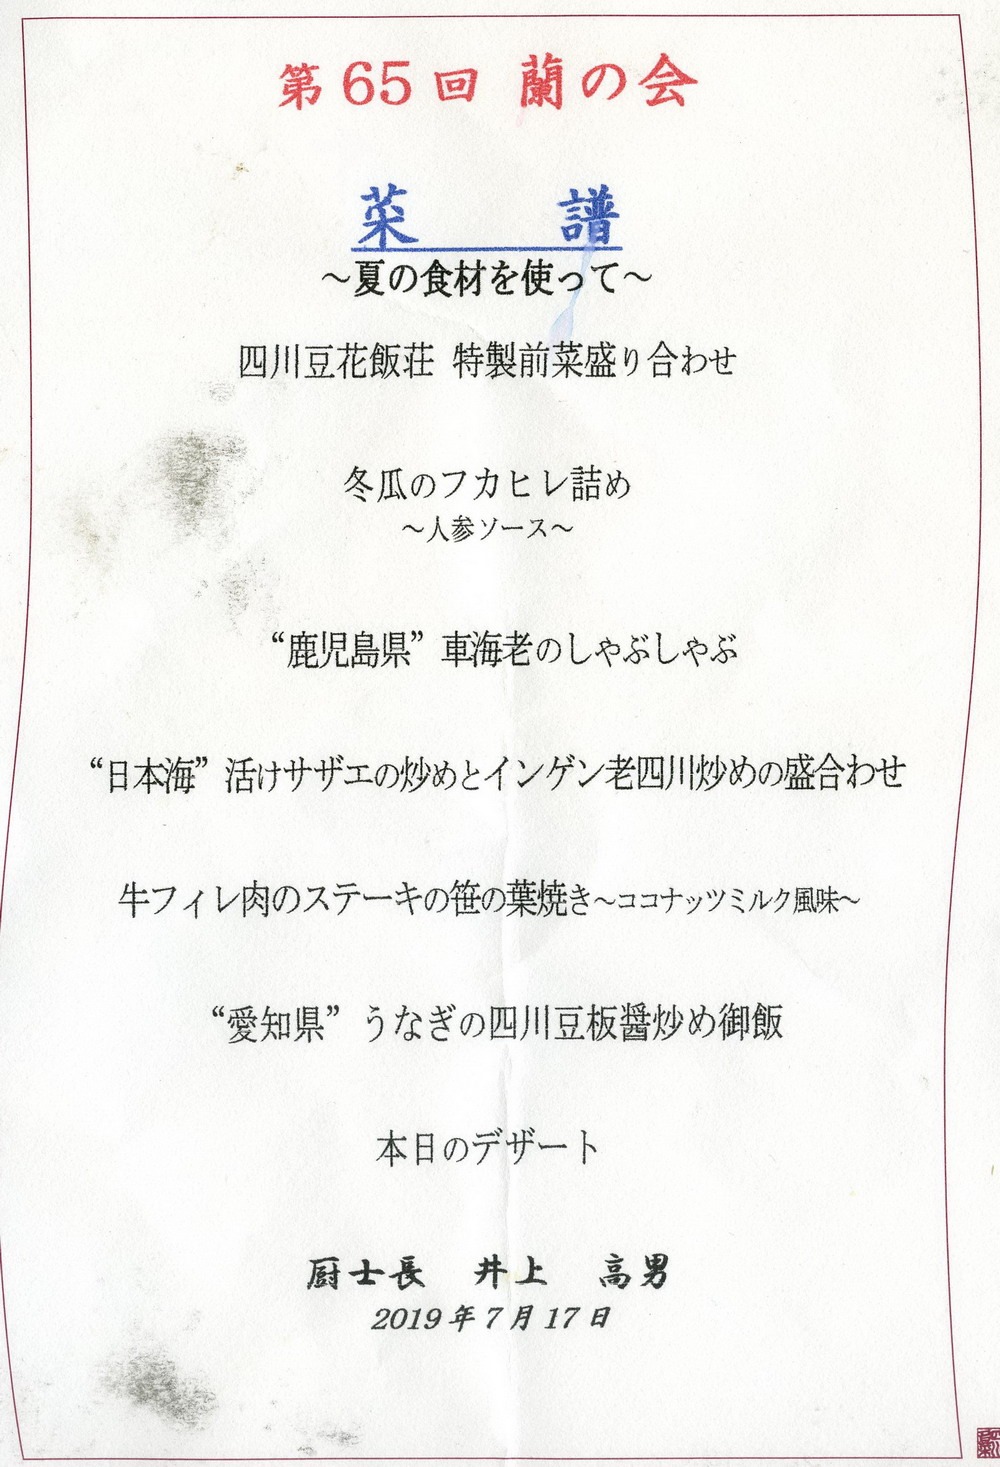 第65回 蘭の会
菜 譜
～夏の食材を使って～
四川豆花飯荘 特製前菜盛り合わせ
冬瓜のフカヒレ詰め
～人参ソース～
“鹿児島県” 車海老のしゃぶしゃぶ
“日本海” 活けサザエの炒めとインゲン老四川炒めの盛合わせ
牛フィレ肉のステーキの笹の葉焼き～ココナッツミルク風味～
“愛知県” うなぎの四川豆板醤炒め御飯
本日のデザート
厨士長 井上 高男
2019年7月17日